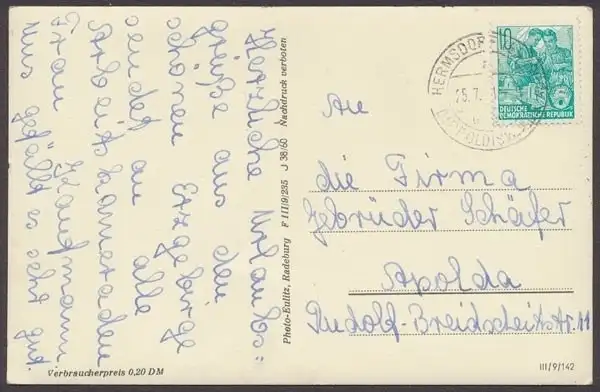 Herzliche Urlaubs=
grüße aus dem
schönen Erzgebirge
sendet an alle
Arbeitskameraden
Frau Kaufmann
uns gefällt es sehr gut.
Verbraucherpreis 0,20 DM
Photo-Eulitz, Radeburg F III/9/235 J 38/60 Nachdruck verboten
10
DEUTSCHE
DEMOKRATISCHE REPUBLIK
HERMSDORF
25.7.
An
die Firma
Gebrüder Schäfer
Apolda
Rudolf-Breidscheitstr. 11
III/9/142